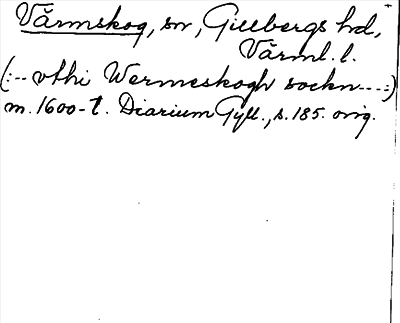 Värmskog, sn, Gillbergs hd,
Värml. l.
(:-- vthi Wermeskogh sockn ----:)
m. 1600-t. Diarium Gyll., s. 185. orig.